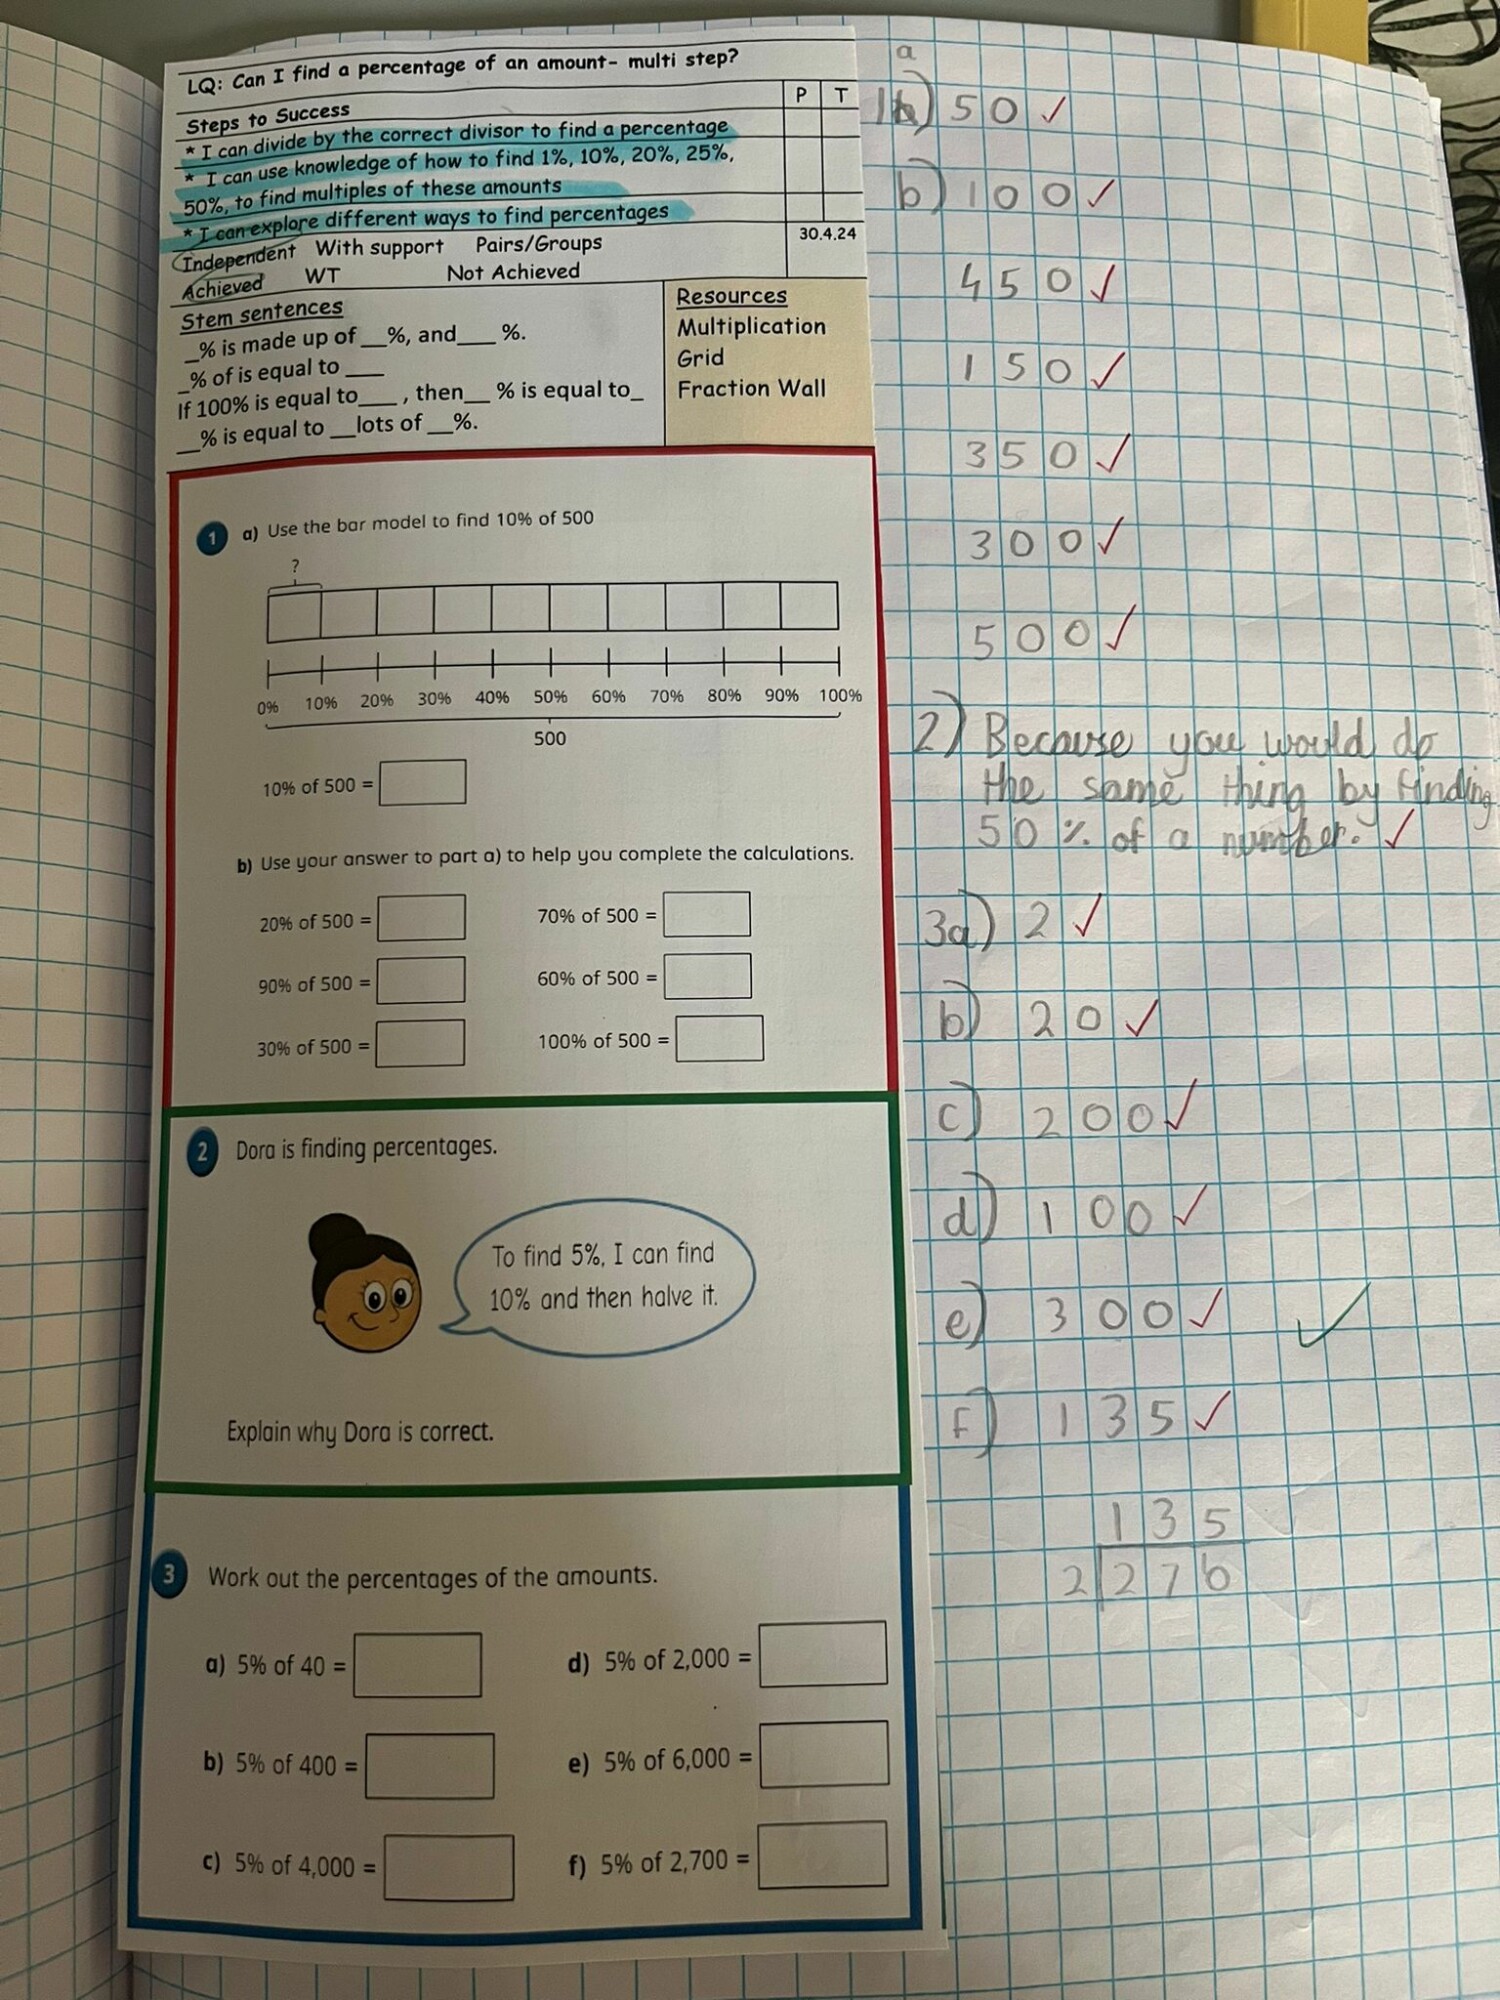 LQ: Can I find a percentage of an amount- multi step?
Steps to Success P T
* I can divide by the correct divisor to find a percentage
* I can use knowledge of how to find 1%, 10%, 20%, 25%,
50%, to find multiples of these amounts
* I can explore different ways to find percentages
Independent With support Pairs/Groups 30.4.24
Achieved WT Not Achieved
Stem sentences
_% is made up of __%, and___ %.
_% of is equal to ___
If 100% is equal to___ , then__ % is equal to_
__% is equal to __lots of __%.
Resources
Multiplication
Grid
Fraction Wall
1 a) Use the bar model to find 10% of 500
?
0% 10% 20% 30% 40% 50% 60% 70% 80% 90% 100%
500
10% of 500 =
b) Use your answer to part a) to help you complete the calculations.
20% of 500 = 70% of 500 =
90% of 500 = 60% of 500 =
30% of 500 = 100% of 500 =
2 Dora is finding percentages.
To find 5%, I can find
10% and then halve it.
Explain why Dora is correct.
3 Work out the percentages of the amounts.
a) 5% of 40 = d) 5% of 2,000 =
b) 5% of 400 = e) 5% of 6,000 =
c) 5% of 4,000 = f) 5% of 2,700 =
a
1) 50 ✓
b) 100 ✓
450 ✓
150 ✓
350 ✓
300 ✓
500 ✓
2) Because you would do
the same thing by finding
50 % of a number. ✓
3a) 2 ✓
b) 20 ✓
c) 200 ✓
d) 100 ✓
e) 300 ✓ ✓
f) 135 ✓
135
2 270